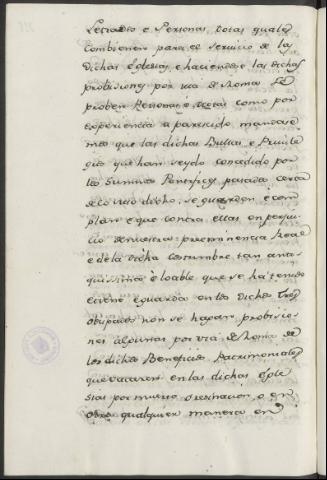 Letrados e Personas, tales quales
Combienen para el Servicio de las
Dichas Iglesias, e haciendose las dichas
probisiones por via de Roma se
proben Personas como por
experiencia a parescido, mandamos
mos que las dichas Bullas e Privile
gios que han seydo concedidos por
los Summos Pontifices pasados cerca
de lo suso dicho, se guarden e cum
plan e que contra ellas en perjui
cio de nuestra preeminencia Real
e de la dicha costumbre tan anti
quissima e loable que se ha tenido
e tiene e guarda en los dichos Tres
obispados non se hagan probisio
nes algunas por via de Roma de
los dichos Beneficios Patrimoniales
que vacaren en las dichas Igle
sias por muerte o resinacion, o en
otra qualquier manera en